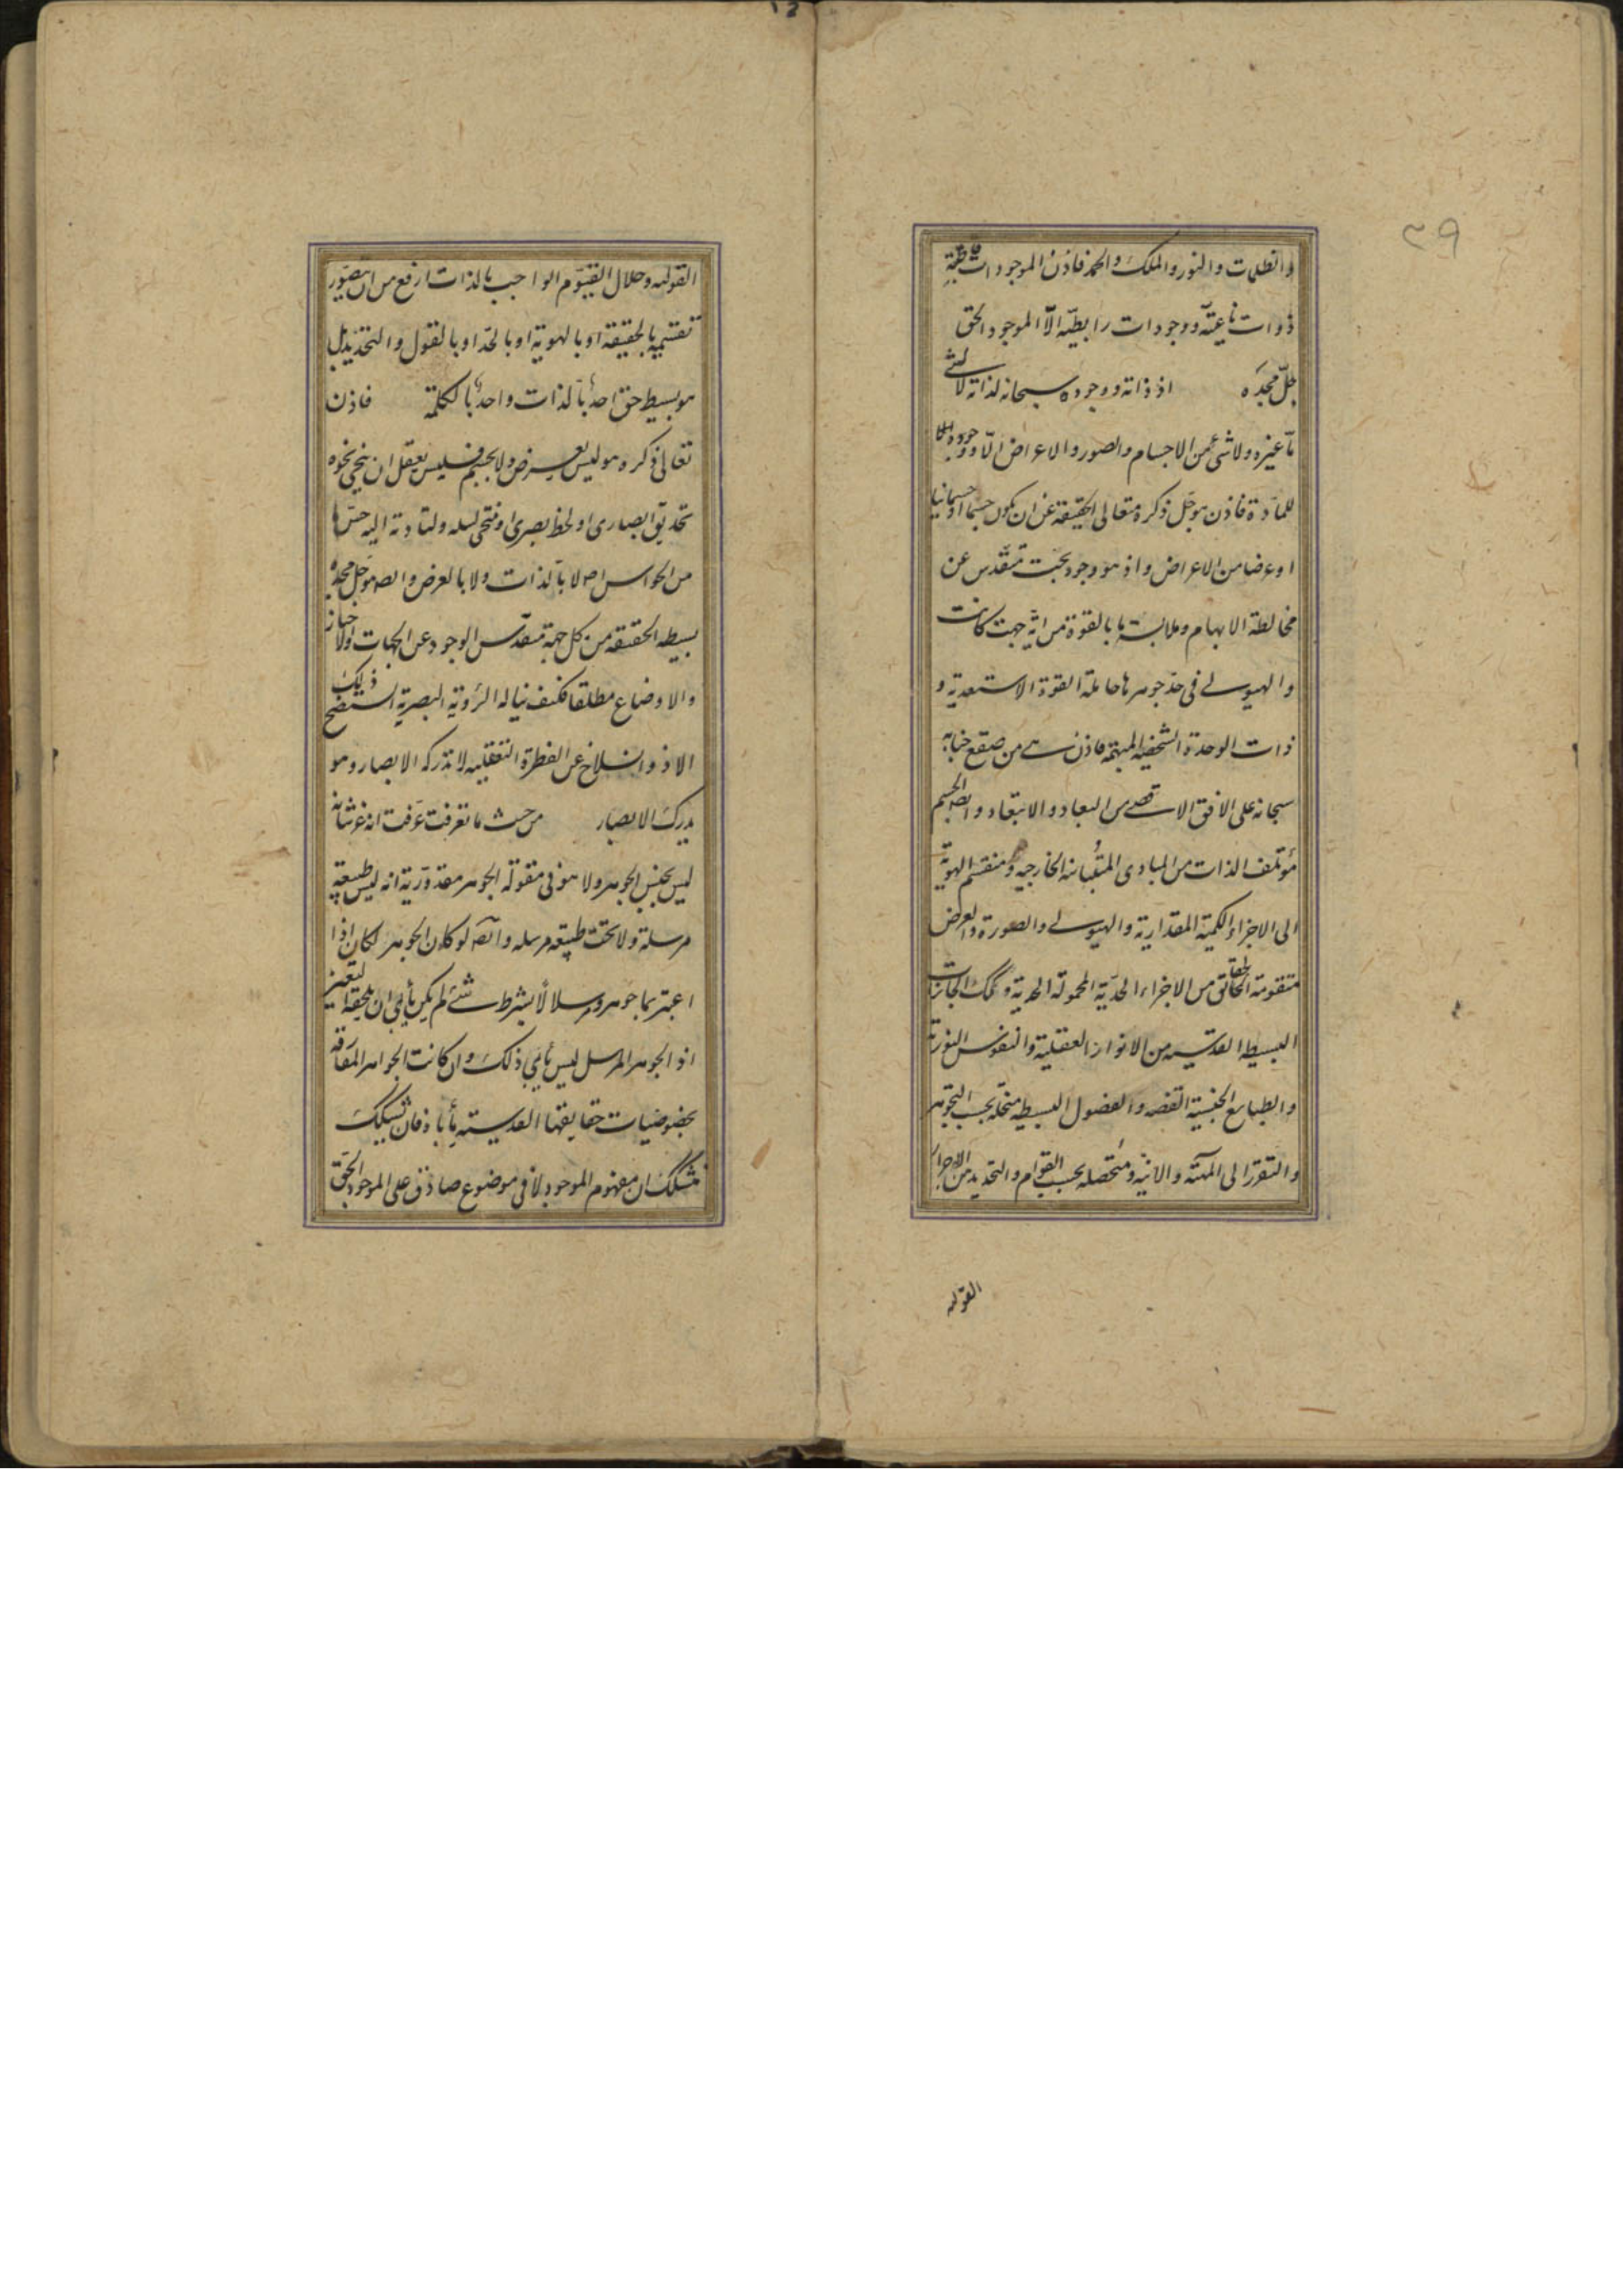 ٣٩
والظلمات والنور والملك والحمد فاذن الموجودات قاطبة
ذوات ناعتية ووجودات رابطية الا الموجود الحق
جل مجده اذ ذاته ووجوده سبحانه لذاته لا لشئ
ما غيره ولا شئ من الاجسام والصور والاعراض الا ووجوده
للمادة فاذن هو جل ذكره متعالى الحقيقة عن ان يكون جسما او جسمانيا
او عرضا من الاعراض واذ هو وجود بحت متقدس عن
مخالطة الابهام وملابسة ما بالقوة من اية جهت كانت
والهيولى فى حد جوهرها حاملة القوة الاستعدية و
ذات الوحدة الشخصية المبهمة فاذن هى من صقع جنابه
سبحانه على الافق الاقصى من البعاد والابتعاد وايضا الجسم
مؤتلف الذات من المبادى المتباينة الخارجية ومنقسم الهوية
الى الاجزاء الكمية المقدارية والهيولى والصورة والعرض
متقومة الحقايق من الاجزاء الحدية المحمولة الحدية وتلك الجائزات
البسيطة القدسية من الانوار العقلية والنفوس النورية
والطبايع الجنسية والفصول البسيطة منحلة بحسب التجوهر
والتقرر الى المهية والانية ومتحصلة بحسب القوام والتحديد من الاجزاء
القولية
القولية وجلال القيوم الواجب بالذات ارفع من ان يتصور
تقسيمه بالحقيقة او بالهوية او بالحد او بالقول والتحديد بل
هو بسيط حق احد بالذات واحد بالكلمة فاذن
تعالى ذكره وهو ليس بعرض ولا بجسم فليس يعقل ان ينحى نحوه
تحديق ابصارى او لحظ بصرى او ولتادته اليه حس ما
من الحواس اصلا لا بالذات ولا بالعرض وايضا هو جل مجده
بسيط الحقيقة من كل جهة متقدس الوجود عن الجهات والاحياز
والاوضاع مطلقا فكيف يناله الرؤية البصرية ذلك
الا ذو انسلاخ عن الفطرة العقلية لا تدركه الابصار وهو
يدرك الابصار من حيث ما تعرفت عرفت انه عز شانه
ليس بجنس الجوهر ولا هو فى مقولة الجوهر مقدوريّة انه ليس طبيعة
مرسلة ولا تحت طبيعة مرسلة وايضا لو كان الجوهر لكان اذا
اعتبر بما جوهر مرسلا لا بشرط شئ لم يكن يأبى ان يلحقه التغير
اذ الجوهر المرسل ليس يأبى ذلك وان كانت الجواهر المفارقة
بخصوصيات حقايقها القدسية يأباه فان تشكك
متشكك ان مفهوم الموجود لا فى موضوع صادق على الموجود الحق